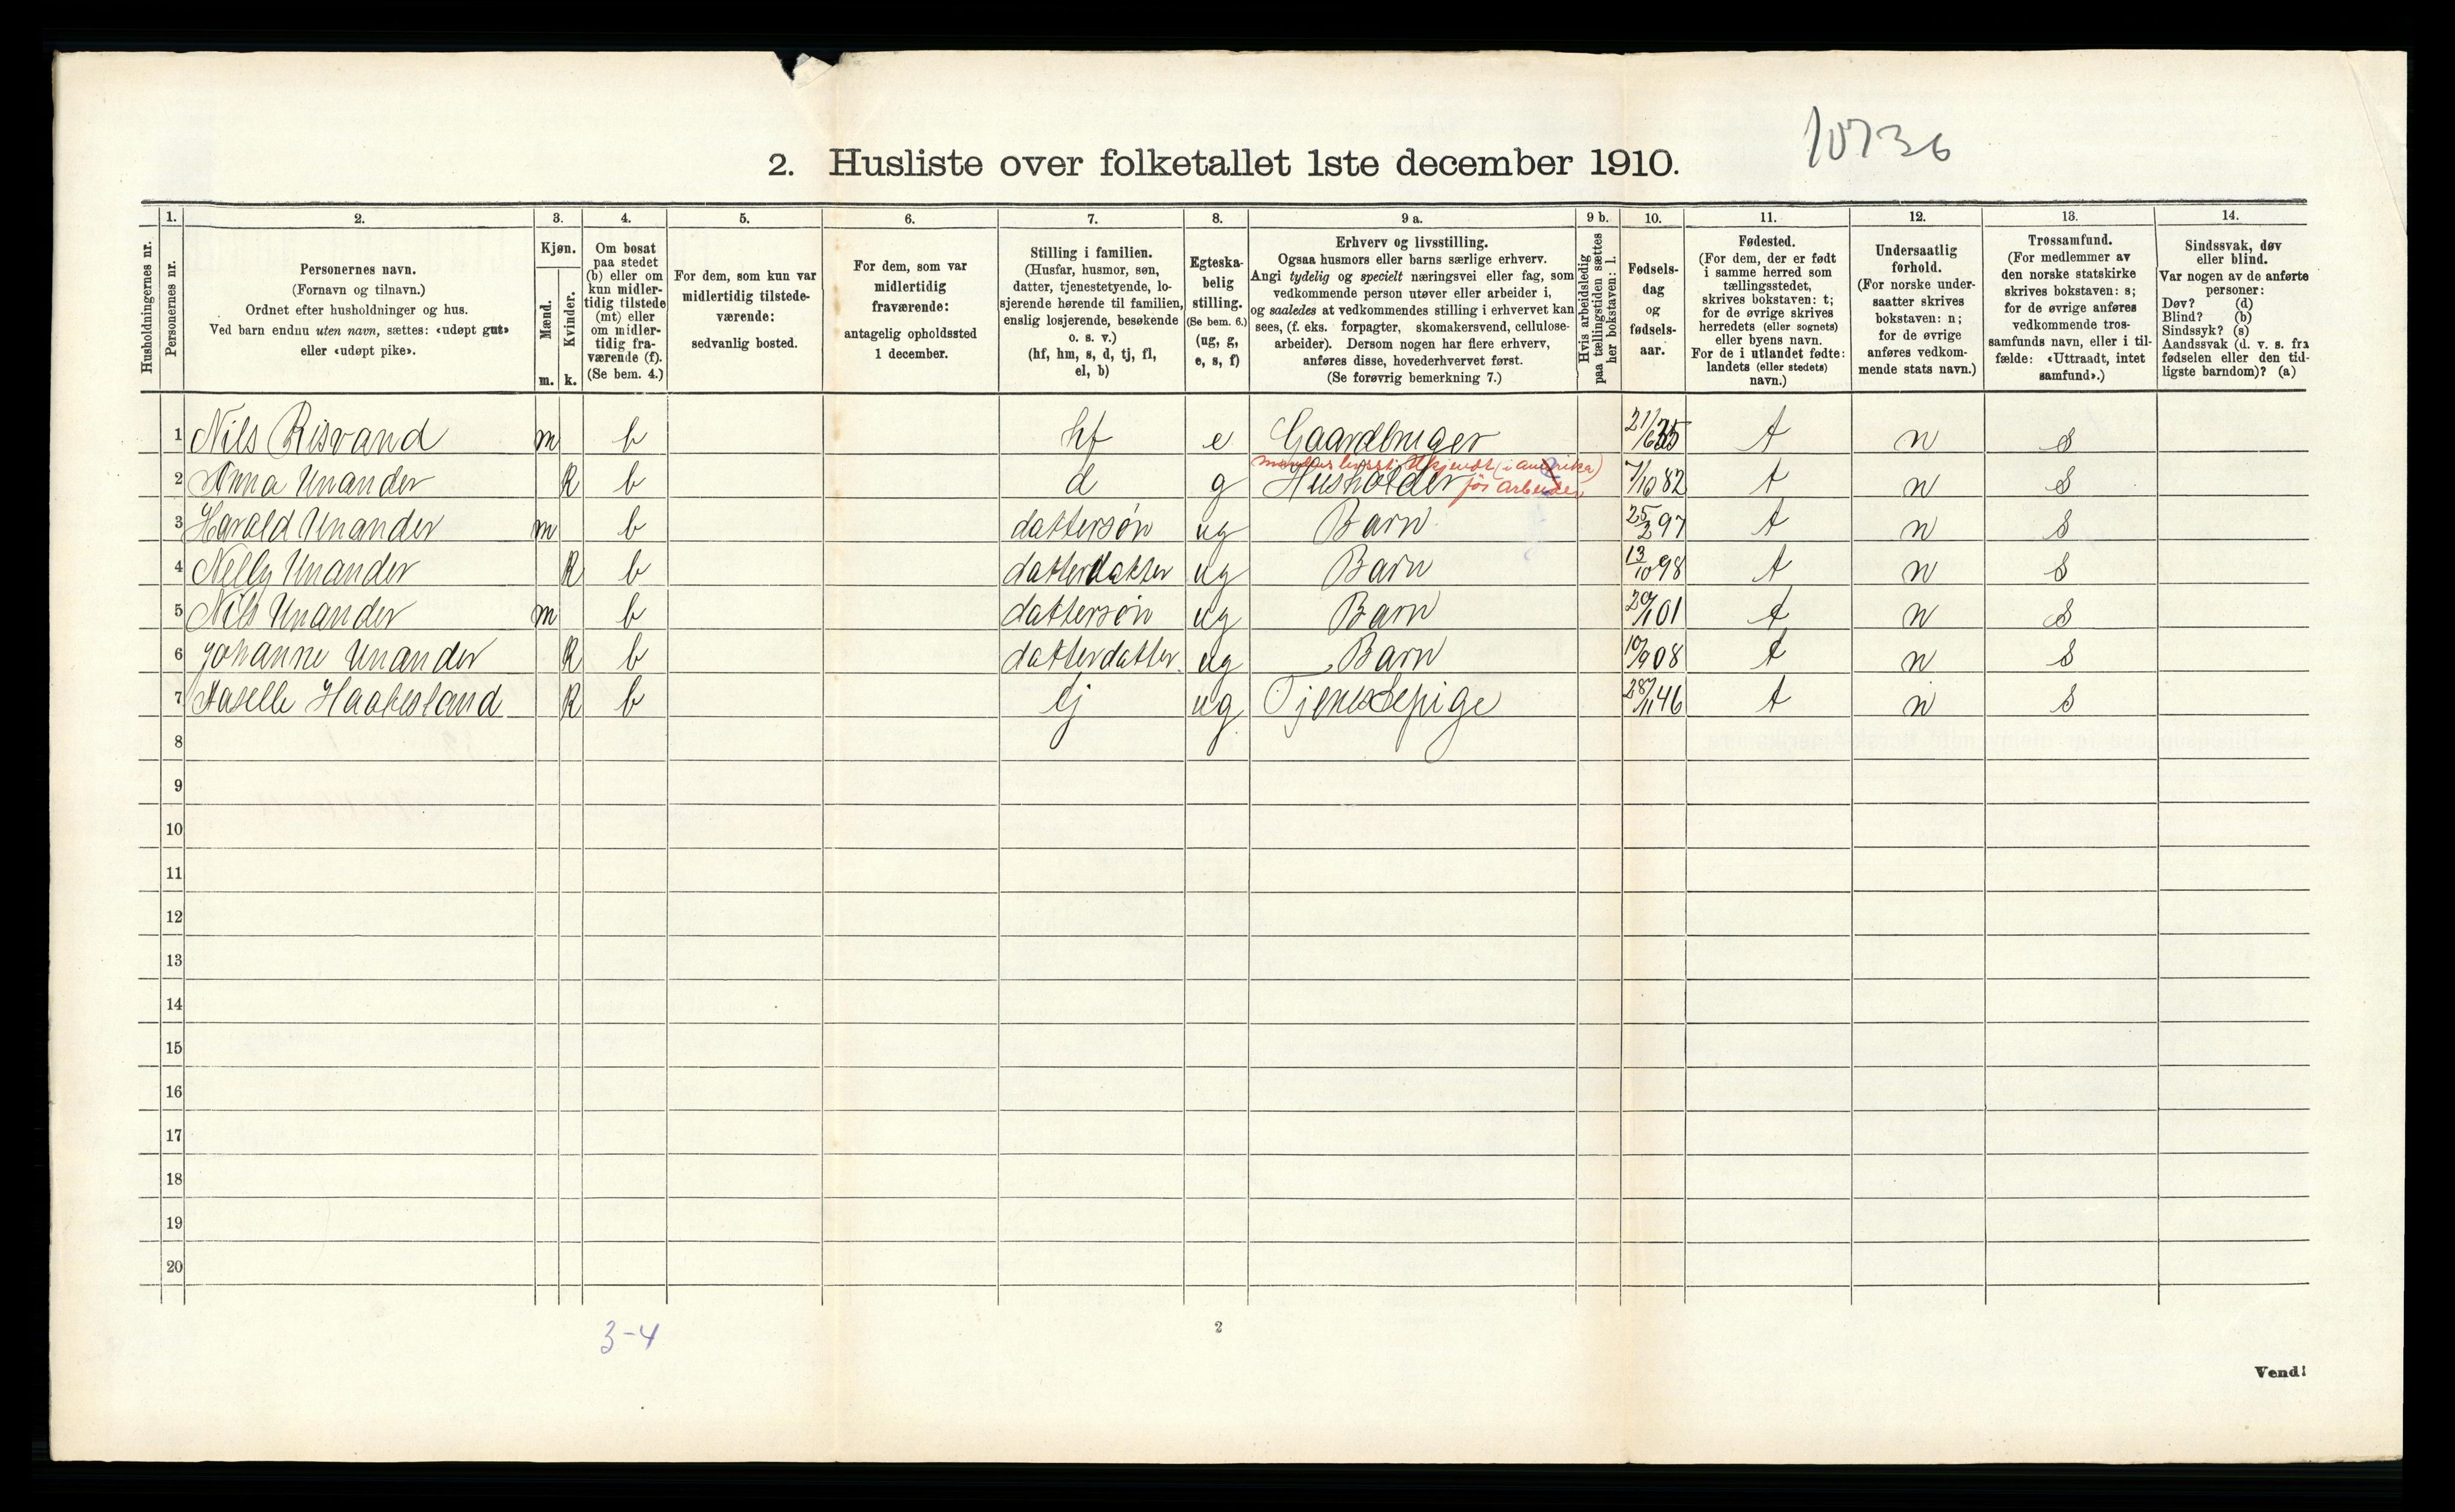 10736
2. Husliste over folketallet 1ste december 1910.
Husholdningernes nr.
1.
Personernes nr.
2.
Personernes navn.
(Fornavn og tilnavn.)
Ordnet efter husholdninger og hus.
Ved barn endnu uten navn, sættes: «udøpt gut»
eller «udøpt pike».
3.
Kjøn.
Mænd.
Kvinder.
m. k.
4.
Om bosat
paa stedet
(b) eller om
kun midler-
tidig tilstede
(mt) eller
om midler-
tidig fra-
værende (f).
(Se bem. 4.)
5.
For dem, som kun var
midlertidig tilstede-
værende:
sedvanlig bosted.
6.
For dem, som var
midlertidig
fraværende:
antagelig opholdssted
1 december.
7.
Stilling i familien.
(Husfar, husmor, søn,
datter, tjenestetyende, lo-
sjerende hørende til familien,
enslig losjerende, besøkende
o. s. v.)
(hf, hm, s, d, tj, fl,
el, b)
8.
Egteska-
belig
stilling.
(Se bem. 6.)
(ug, g,
e, s, f)
9 a.
Erhverv og livsstilling.
Ogsaa husmors eller barns særlige erhverv.
Angi tydelig og specielt næringsvei eller fag, som
vedkommende person utøver eller arbeider i,
og saaledes at vedkommendes stilling i erhvervet kan
sees, (f. eks. forpagter, skomakersvend, cellulose-
arbeider). Dersom nogen har flere erhverv,
anføres disse, hovederhvervet først.
(Se forøvrig bemerkning 7.)
9 b.
Hvis arbeidsledig
paa tællingstiden sættes
her bokstaven: l.
10.
Fødsels-
dag
og
fødsels-
aar.
11.
Fødested.
(For dem, der er født
i samme herred som
tællingsstedet,
skrives bokstaven: t;
for de øvrige skrives
herredets (eller sognets)
eller byens navn.
For de i utlandet fødte:
landets (eller stedets)
navn.)
12.
Undersaatlig
forhold.
(For norske under-
saatter skrives
bokstaven: n;
for de øvrige
anføres vedkom-
mende stats navn.)
13.
Trossamfund.
(For medlemmer av
den norske statskirke
skrives bokstaven: s;
for de øvrige anføres
vedkommende tros-
samfunds navn, eller i til-
fælde: «Uttraadt, intet
samfund».)
14.
Sindssvak, døv
eller blind.
Var nogen av de anførte
personer:
Døv? (d)
Blind? (b)
Sindssyk? (s)
Aandssvak (d. v. s. fra
fødselen eller den tid-
ligste barndom)? (a)
1 Nils Risvand m b hf e Gaardbruger 21/6 35 t n s
mandens livsst. Ukjendt (i amerika)
2 Anna Unander K b d g Husholder før arbeider 7/10 82 t n s
3 Harald Unander m b dattersøn ug Barn 25/2 97 t n s
4 Nelly Unander K b datterdatter ug Barn 13/10 98 t n s
5 Nils Unander m b dattersøn ug Barn 01 t n s
6 Johanne Unander K b datterdatter ug Barn 10/9 08 t n s
7 Aaselle Haabesland K b tj ug Tjenestepige 28/11 46 t n s
8
9
10
11
12
13
14
15
16
17
18
19
20
3-4
2
Vend!